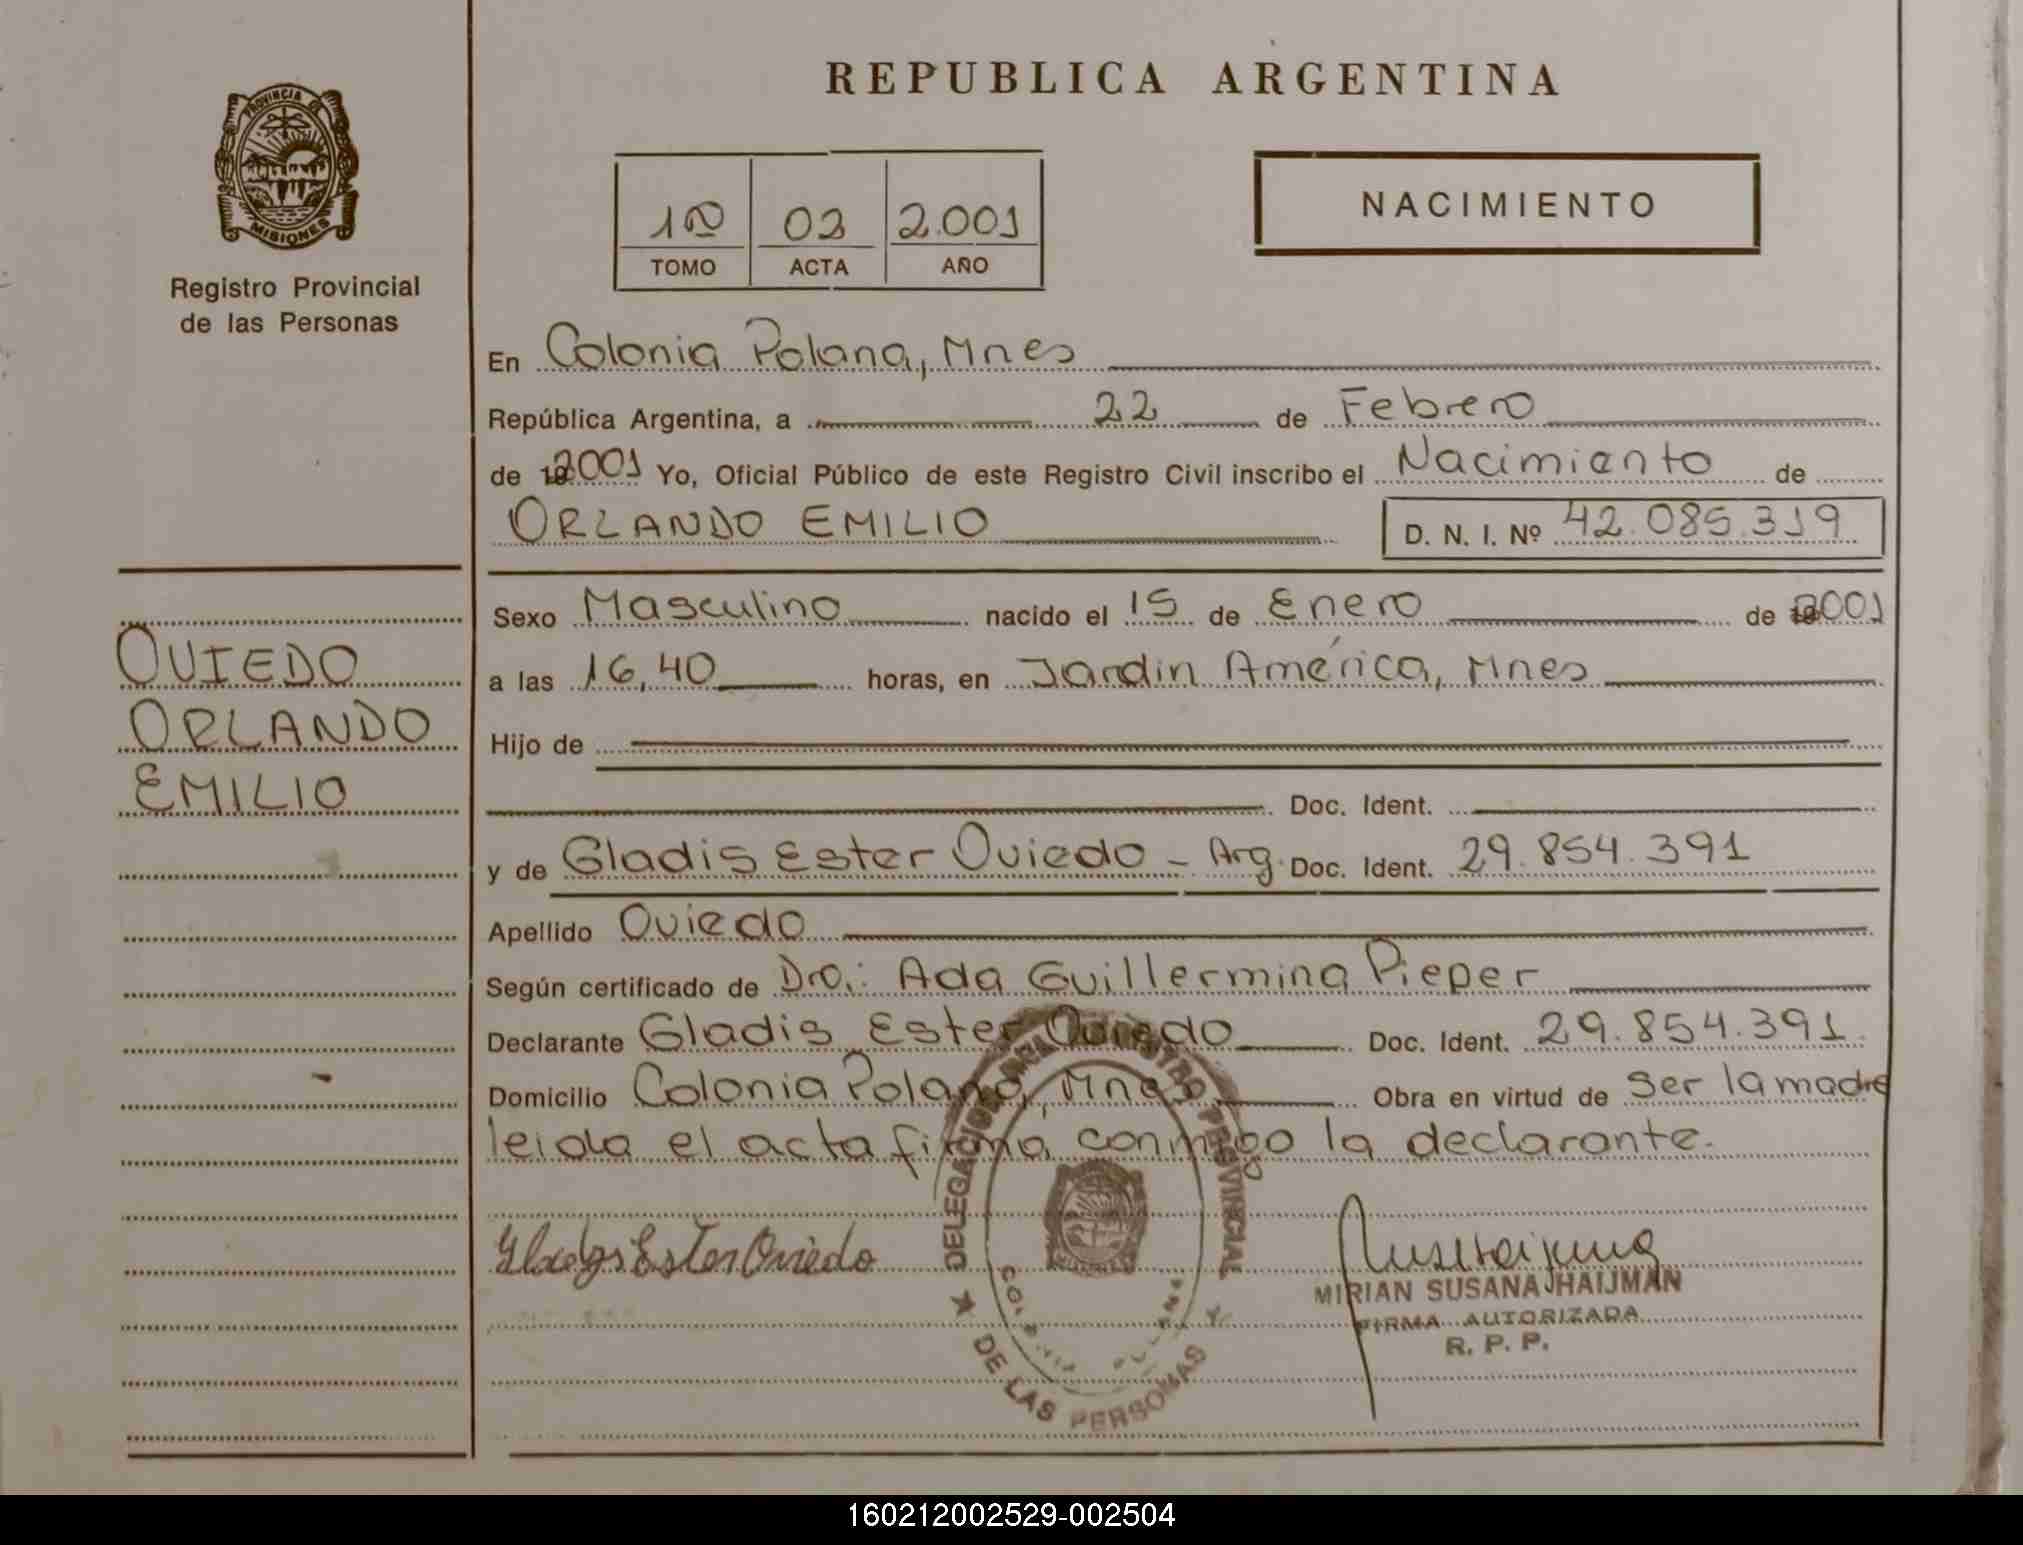 REPUBLICA ARGENTINA
PROVINCIA DE
MISIONES
Registro Provincial
de las Personas
NACIMIENTO
1º 03 2.001
TOMO ACTA AÑO
En Colonia Polana, Mnes
República Argentina, a 22 de Febrero
de 2001 Yo, Oficial Público de este Registro Civil inscribo el Nacimiento de
ORLANDO EMILIO D. N. I. Nº 42.085.319
OVIEDO
ORLANDO
EMILIO
Sexo Masculino nacido el 15 de Enero de 2001
a las 16,40 horas, en Jardin América, Mnes
Hijo de
Doc. Ident.
y de Gladis Ester Oviedo - Arg. Doc. Ident. 29.854.391
Apellido Oviedo
Según certificado de Dra.: Ada Guillermina Pieper
Declarante Gladis Ester Oviedo Doc. Ident. 29.854.391
Domicilio Colonia Polana, Mnes Obra en virtud de Ser la madre
leida el acta firma conmigo la declarante.
Gladys Ester Oviedo
DELEGACION REGISTRO PROVINCIAL
DE LAS PERSONAS
MIRIAN SUSANA HAIJMAN
FIRMA AUTORIZADA
R. P. P.
160212002529-002504